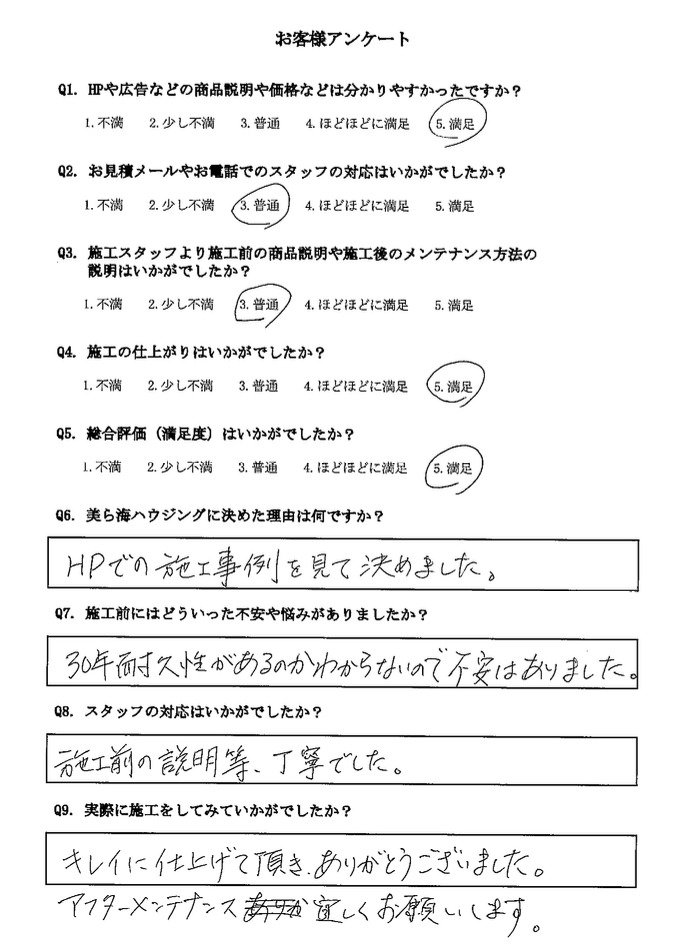 お客様アンケート
Q1. HPや広告などの商品説明や価格などは分かりやすかったですか？
1.不満 2.少し不満 3.普通 4.ほどほどに満足 5.満足
Q2. お見積メールやお電話でのスタッフの対応はいかがでしたか？
1.不満 2.少し不満 3.普通 4.ほどほどに満足 5.満足
Q3. 施工スタッフより施工前の商品説明や施工後のメンテナンス方法の
説明はいかがでしたか？
1.不満 2.少し不満 3.普通 4.ほどほどに満足 5.満足
Q4. 施工の仕上がりはいかがでしたか？
1.不満 2.少し不満 3.普通 4.ほどほどに満足 5.満足
Q5. 総合評価（満足度）はいかがでしたか？
1.不満 2.少し不満 3.普通 4.ほどほどに満足 5.満足
Q6. 美ら海ハウジングに決めた理由は何ですか？
HPでの施工事例を見て決めました。
Q7. 施工前にはどういった不安や悩みがありましたか？
30年耐久性があるのかわからないので不安はありました。
Q8. スタッフの対応はいかがでしたか？
施工前の説明等、丁寧でした。
Q9. 実際に施工をしてみていかがでしたか？
キレイに仕上げて頂き、ありがとうございました。
アフターメンテナンス宜しくお願いします。